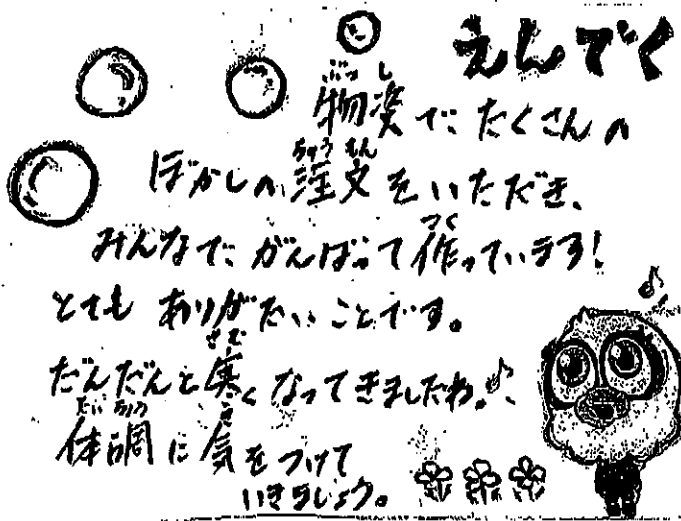 えんでく
物資でたくさんの
ぼかしの注文をいただき、
みんなでがんばって作っています!
とてもありがたいことです。
だんだんと寒くなってきましたね。♪
体調に気をつけて
いきましょう。